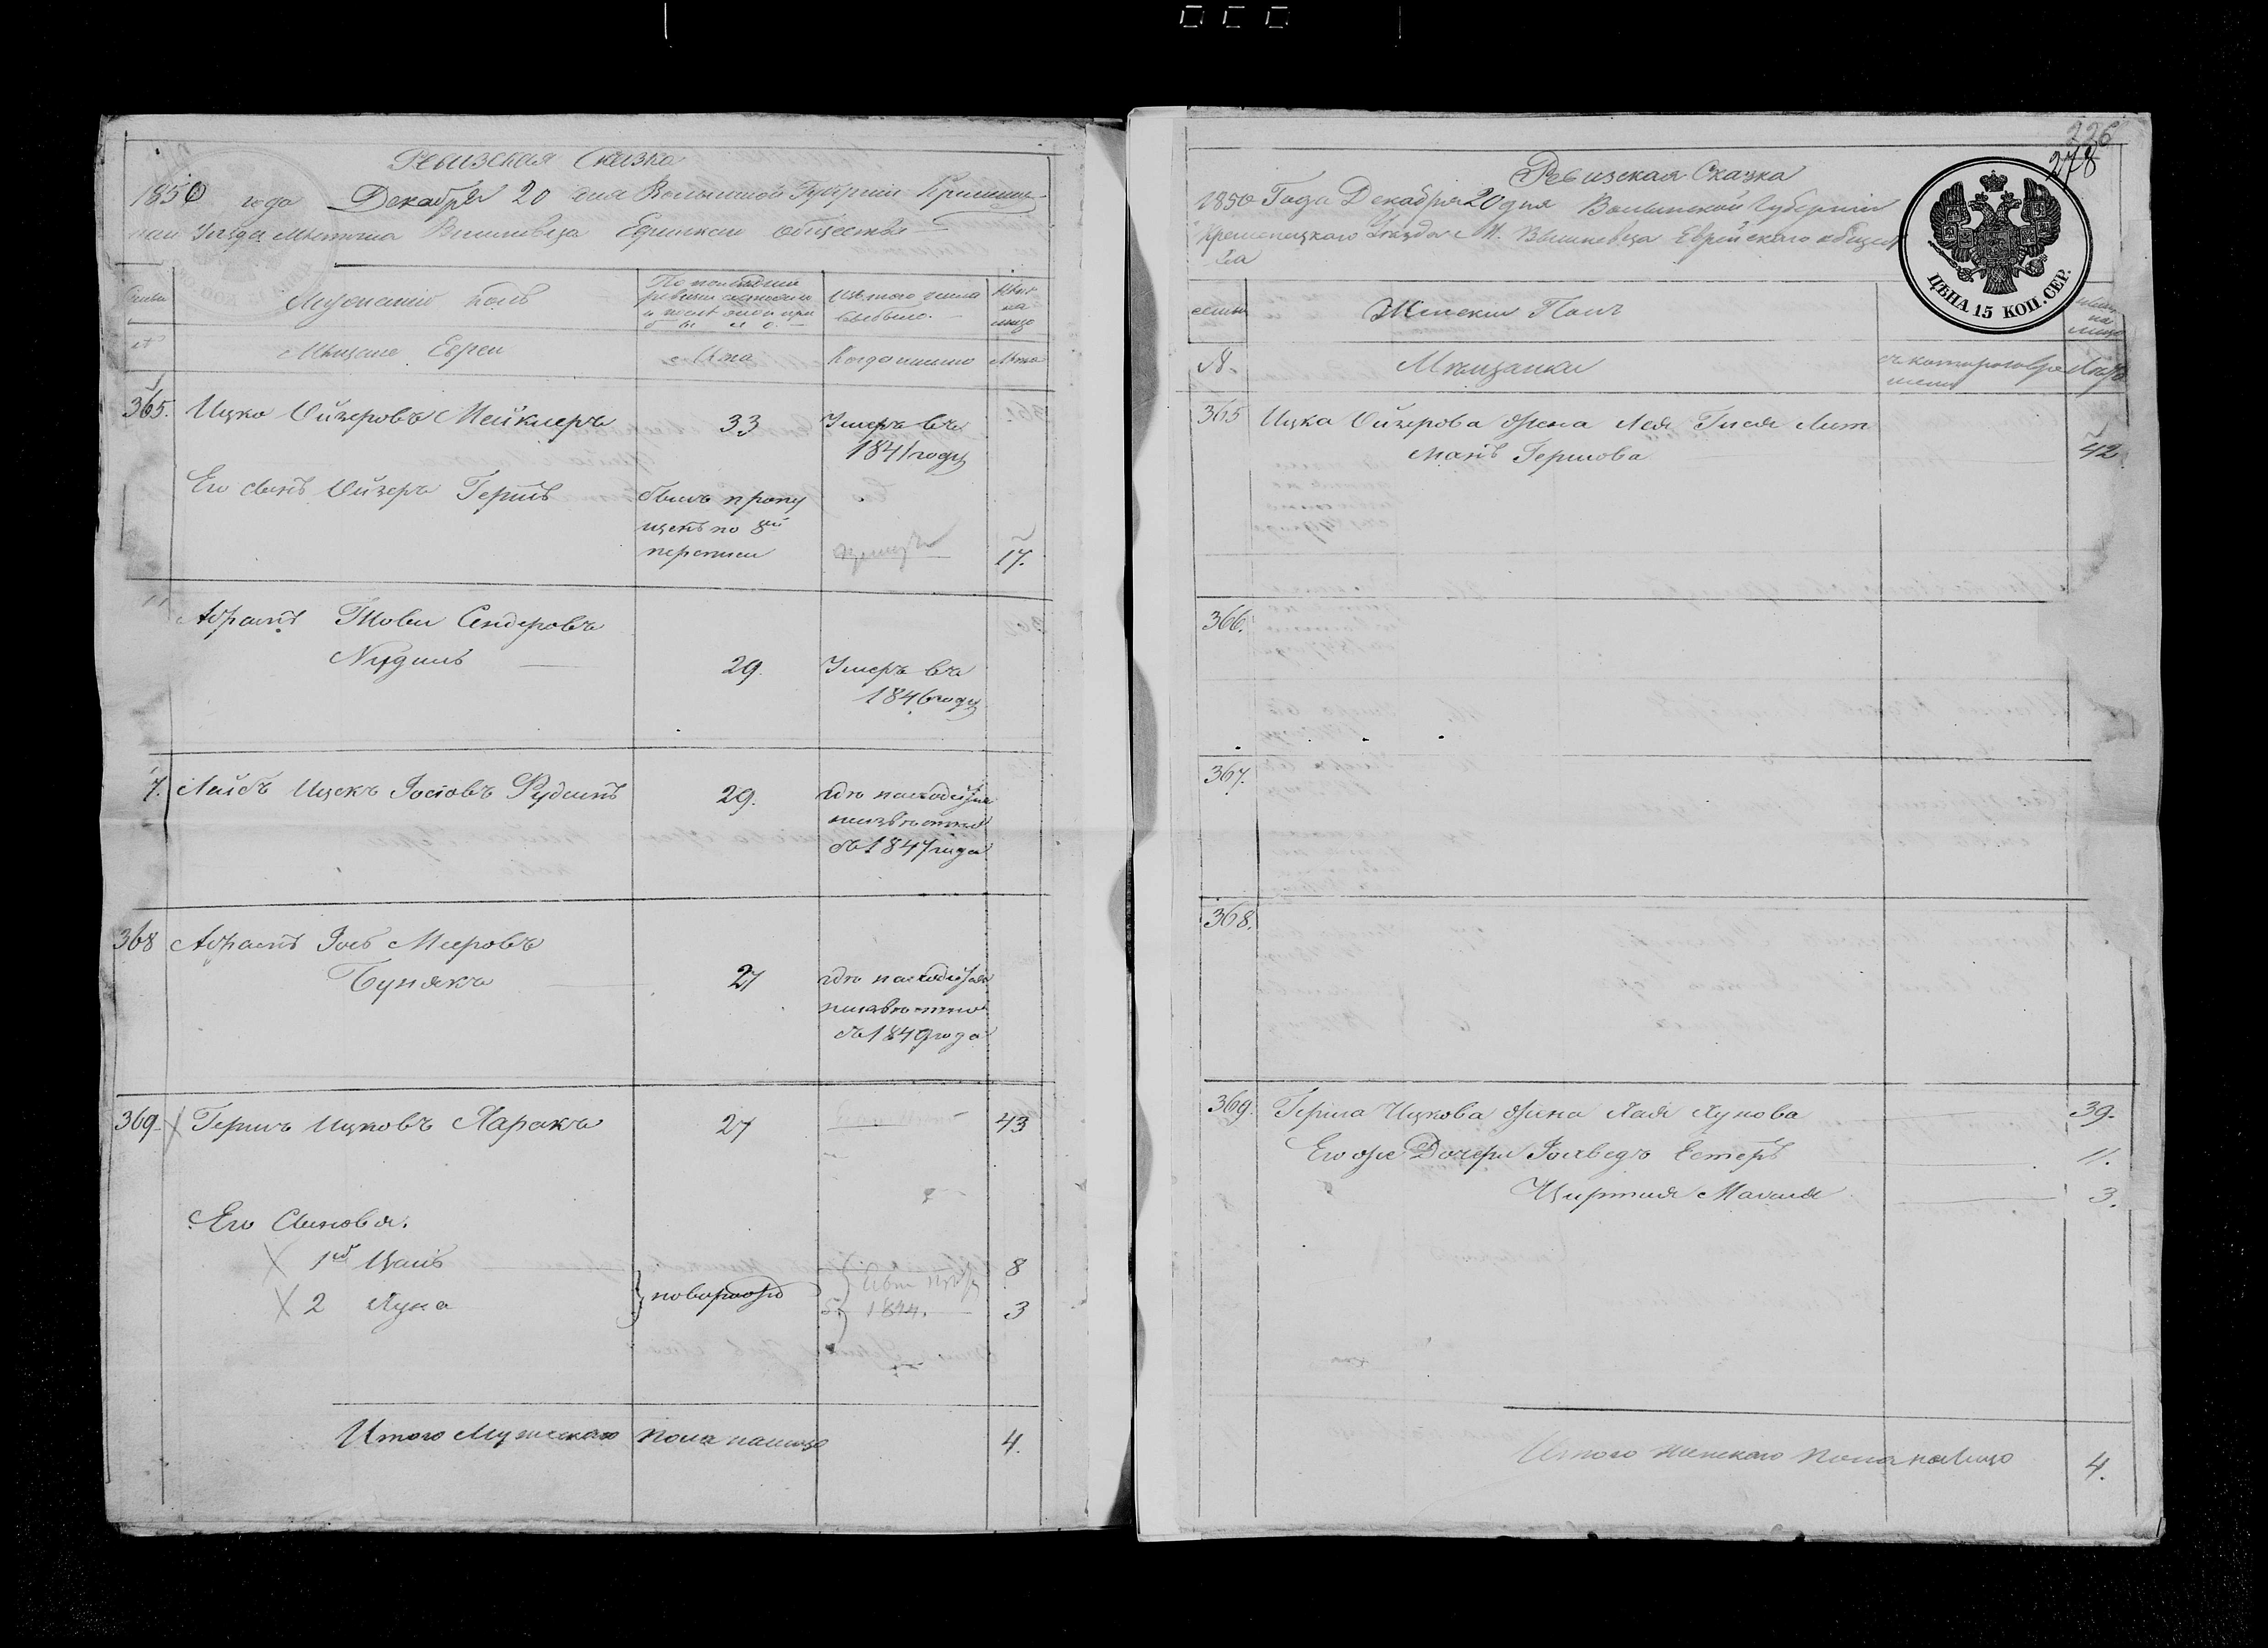 Ревизская Сказка
1850 года Декабря 20 дня Волынской Губернии Кременец-
каго Уезда местечка Вишневца Еврейскаго общества
Семьи
Мужеский полъ
По последней ревизии состояло и после оной прибыло
Изъ того числа выбыло.
Ныне на лицо
№
Мещане Евреи
Лета
Когда именно
Лета
365. Ицко Ойзеровъ Мейклеръ 33 Умеръ въ
1841 году
Его Сынъ Ойзеръ Гершъ былъ пропу
щенъ по 8й
переписи 17.
Абрамъ Тови Сендеровъ
29. Умеръ въ
1846 году
7. Лейбъ Ицекъ Іосіовъ 29. где находится
неизвестно
съ 1847 года
368 Абрамъ Іось Мееровъ
Бунякъ 27 где находится
неизвестно
съ 1849 года
369. Гершъ Ицковъ Ларакъ 27 43
Его Сыновья.
1й 8
2 новорожд 1844. 3
Итого Мужескаго пола налицо 4.
226
278
Ревизская Сказка
1850 Года Декабря 20 дня Волынской Губернии
Кременецкаго Уезда М. Вышневца Еврейскаго общест
ва
ЦѢНА 15 КОП. СЕР.
семьи
Женский Полъ
на лицо
№.
Мещанки
съ которого вре
мени
Лета
365 Ицка Ойзерова жена Лея Гися Лит
манъ Гершова 42.
366.
367.
368.
369. Герша Ицкова жена Лая Лунова 39.
Его же Дочери Іохведъ Естеръ 11.
Малия 3.
Итого женскаго пола налицо 4.